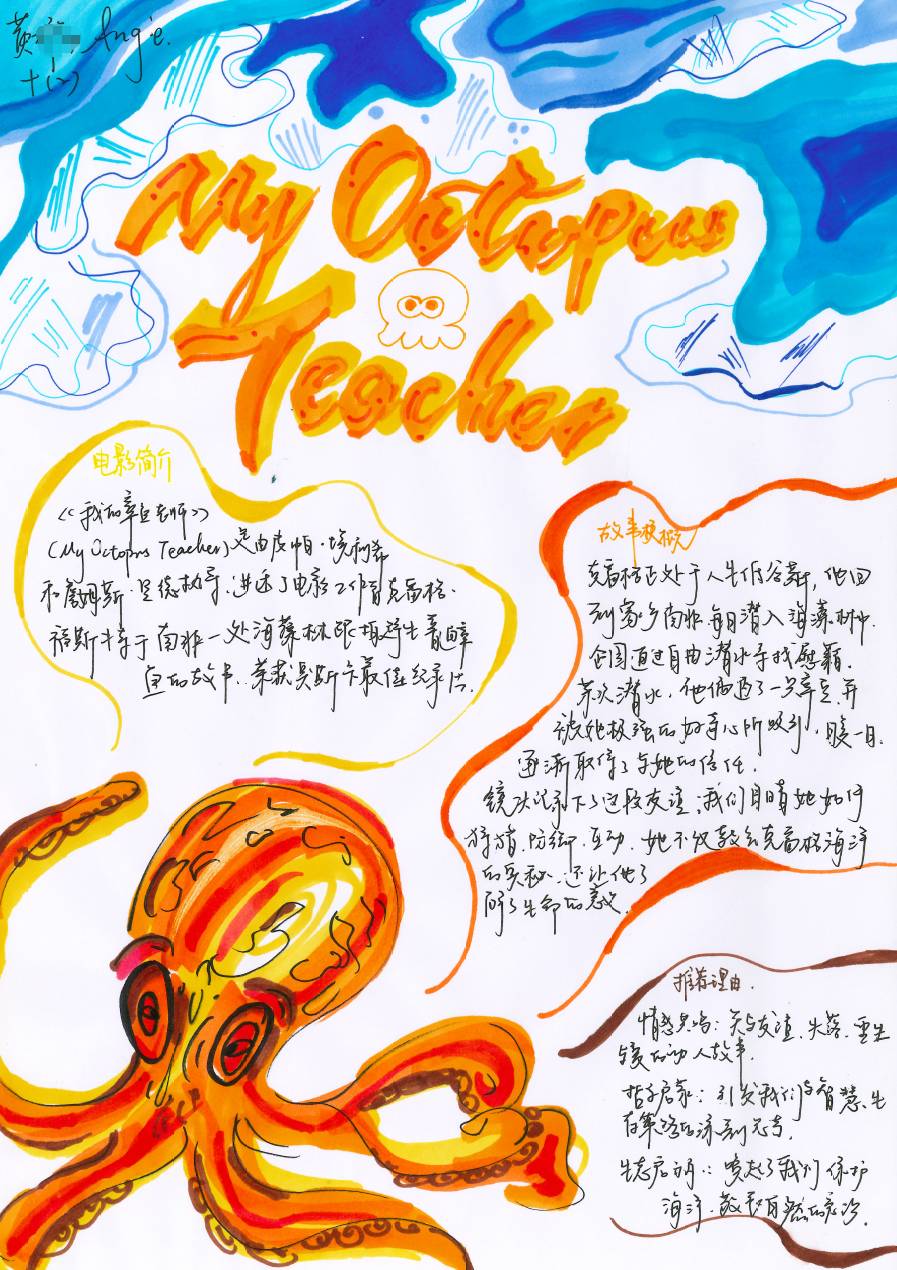 黄 Angie.
十(2)
My Octopus
Teacher
电影简介
《我的章鱼老师》
(My Octopus Teacher)是由皮帕·埃利希
和詹姆斯·里德执导,讲述了电影工作者克雷格·
福斯特于南非一处海藻林跟一章鱼
鱼的故事、荣获奥斯卡最佳纪录片.
故事梗概
克雷格正处于人生低谷期,他回
到家乡南非每日潜入海藻林中.
企图通过自由潜水寻找慰藉.
某次潜水,他偶遇了一只章鱼.并
被她极强的好奇心所吸引,日复一日.
逐渐取得了与她的信任.
镜头记录下了这段友谊:我们目睹她如何
狩猎.防御.互动.她不仅教会克雷格海洋
的奥秘.还让他了
解了生命的意义.
推荐理由.
情感共鸣:关与友谊.失落.重生
的动人故事.
哲学启蒙:引发我们与智慧、生
存策略的深刻思考.
生态启明::唤起了我们保护
海洋.敬畏自然的意识.